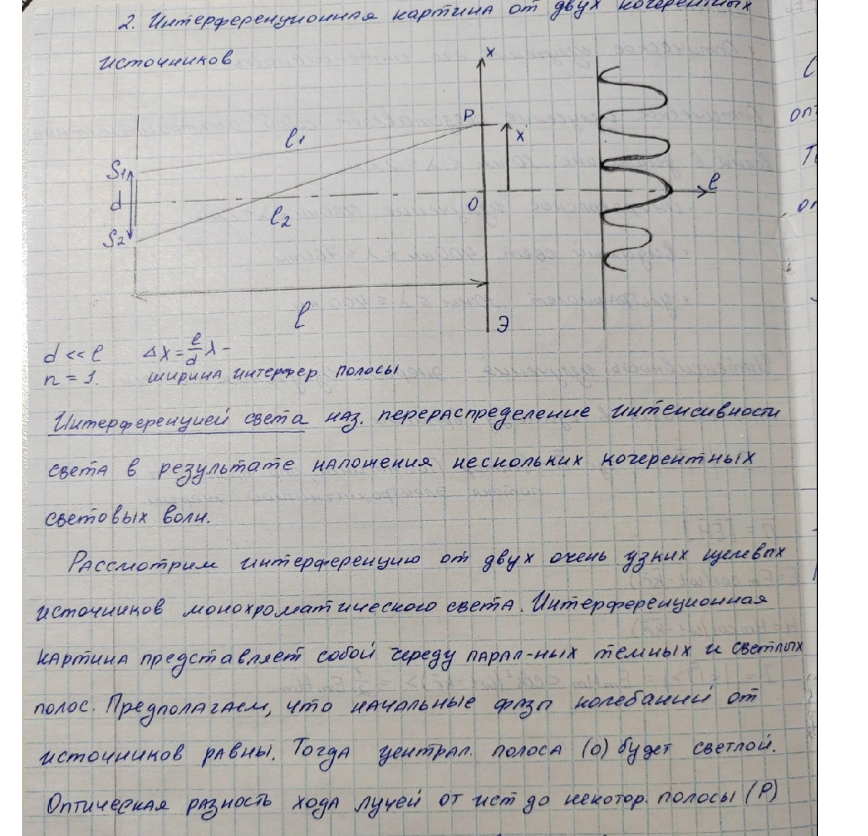 2. Интерференционная картина от двух когерентных
источников
x
P
l1
x
S1
d
O
l
l2
S2
l
Э
d << l   Δx = l/d λ –
n = 1.   ширина интерфер полосы
Интерференцией света наз. перераспределение интенсивности
света в результате наложения нескольких когерентных
световых волн.
Рассмотрим интерференцию от двух очень узких щелевых
источников монохроматического света. Интерференционная
картина представляет собой череду парал-ных темных и светлых
полос. Предполагаем, что начальные фазы колебаний от
источников равны. Тогда централ. полоса (о) будет светлой.
Оптическая разность хода лучей от ист до некотор. полосы (P)